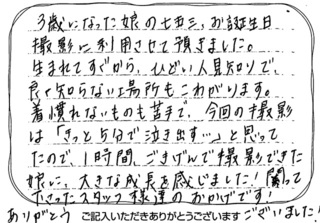 3歳になった娘の七五三、お誕生日
撮影に利用させて頂きました。
生まれてすぐから、ひどい人見知りで、
良く知らない場所もこわがります。
着慣れないものも苦手で、今回の撮影
は「きっと5分で泣き出す…」と思って
たので、1時間、ごきげんで撮影できた
娘に、大きな成長を感じました！関って
下さったスタッフ様達のおかげです！
ありがとう ございました！
ご記入いただきありがとうございます